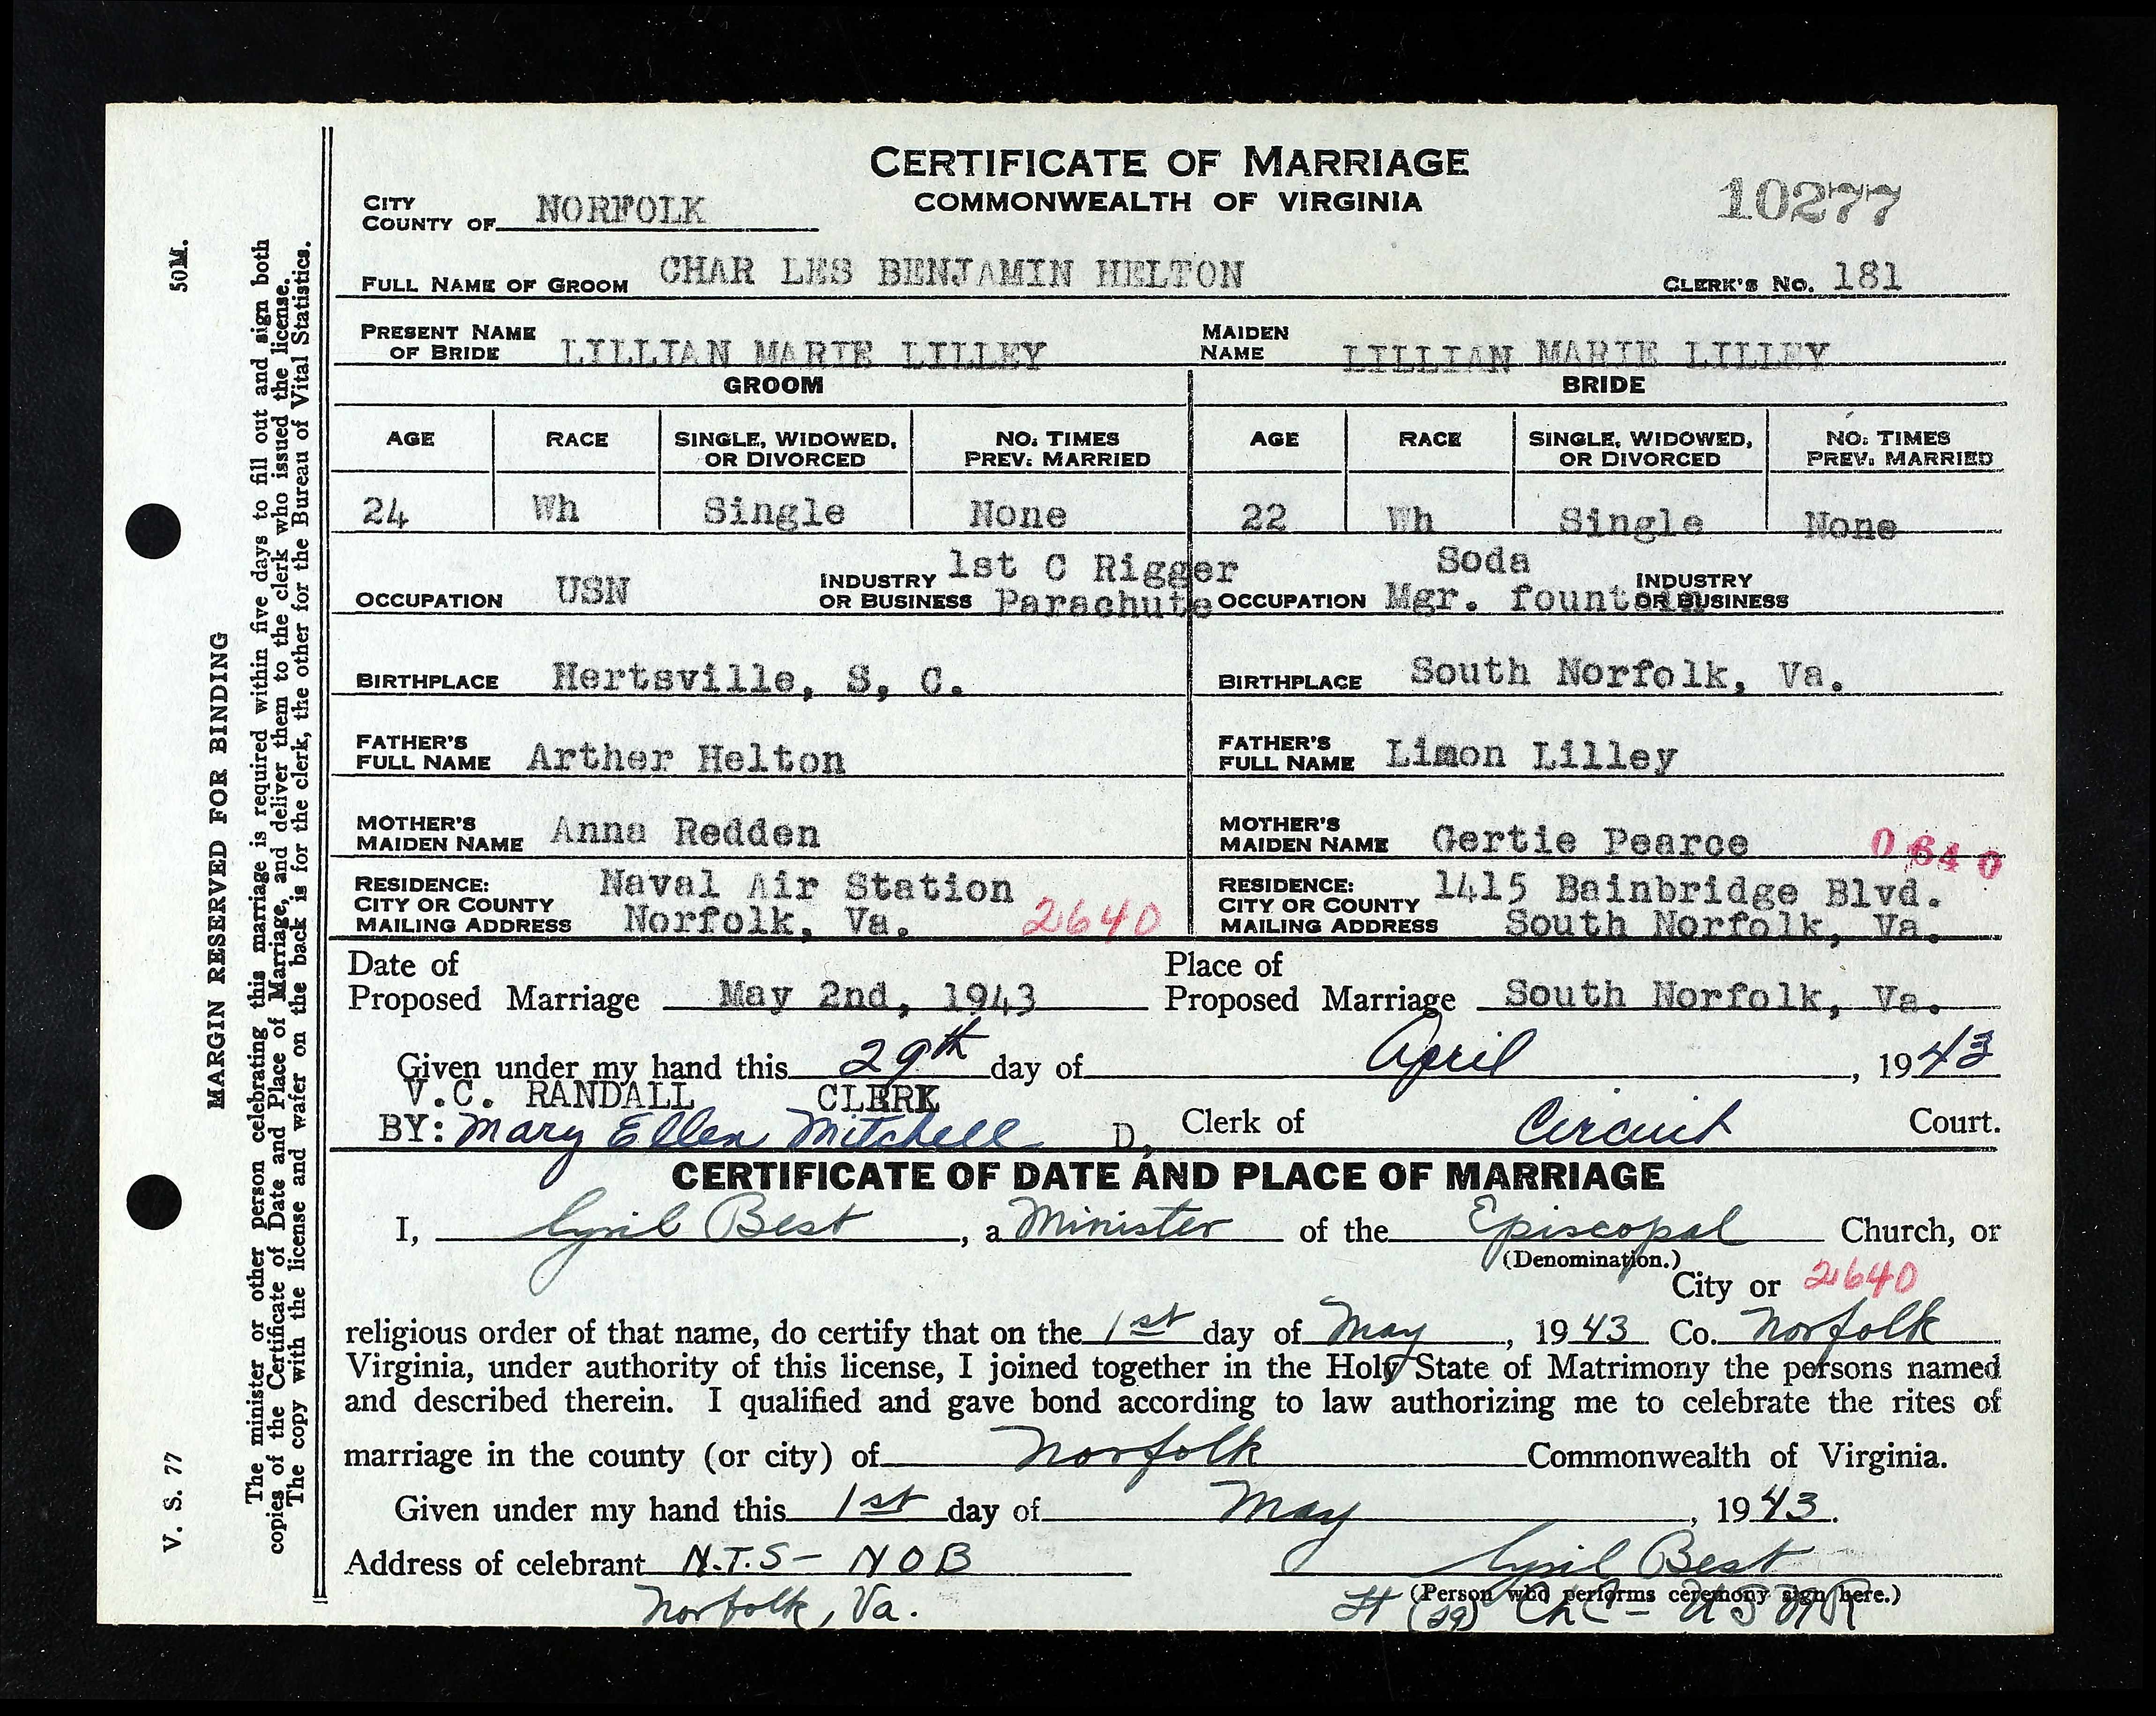 CERTIFICATE OF MARRIAGE
COMMONWEALTH OF VIRGINIA
10277
CITY
COUNTY OF NORFOLK
FULL NAME OF GROOM CHAR LES BENJAMIN HELTON CLERK'S NO. 181
PRESENT NAME OF BRIDE LILLIAN MARIE LILLEY MAIDEN NAME LILLIAN MARIE LILLEY
GROOM BRIDE
AGE RACE SINGLE, WIDOWED, OR DIVORCED NO. TIMES PREV. MARRIED AGE RACE SINGLE, WIDOWED, OR DIVORCED NO. TIMES PREV. MARRIED
24 Wh Single None 22 Wh Single None
OCCUPATION USN INDUSTRY OR BUSINESS 1st C Rigger Parachute OCCUPATION Mgr. Soda fountain INDUSTRY OR BUSINESS
BIRTHPLACE Hertsville, S, C. BIRTHPLACE South Norfolk, Va.
FATHER'S FULL NAME Arther Helton FATHER'S FULL NAME Limon Lilley
MOTHER'S MAIDEN NAME Anna Redden MOTHER'S MAIDEN NAME Gertie Pearce 0640
RESIDENCE: Naval Air Station RESIDENCE: 1415 Bainbridge Blvd.
CITY OR COUNTY CITY OR COUNTY
MAILING ADDRESS Norfolk, Va. 2640 MAILING ADDRESS South Norfolk, Va.
Date of Place of
Proposed Marriage May 2nd, 1943 Proposed Marriage South Norfolk, Va.
Given under my hand this 29th day of April, 1943
V.C. RANDALL CLERK
BY: Mary Ellen Mitchell D. Clerk of Circuit Court.
CERTIFICATE OF DATE AND PLACE OF MARRIAGE
I, Cyril Best, a Minister of the Episcopal Church, or
(Denomination.)
City or 2640
religious order of that name, do certify that on the 1st day of May, 1943 Co. Norfolk
Virginia, under authority of this license, I joined together in the Holy State of Matrimony the persons named
and described therein. I qualified and gave bond according to law authorizing me to celebrate the rites of
marriage in the county (or city) of Norfolk Commonwealth of Virginia.
Given under my hand this 1st day of May, 1943.
Address of celebrant N.T.S - NOB Cyril Best
(Person who performs ceremony sign here.)
Norfolk, Va. Lt (jg) ChC - USNR
50M.
MARGIN RESERVED FOR BINDING
V. S. 77
The minister or other person celebrating this marriage is required within five days to fill out and sign both
copies of the Certificate of Date and Place of Marriage, and deliver them to the clerk who issued the license.
The copy with the license and wafer on the back is for the clerk, the other for the Bureau of Vital Statistics.